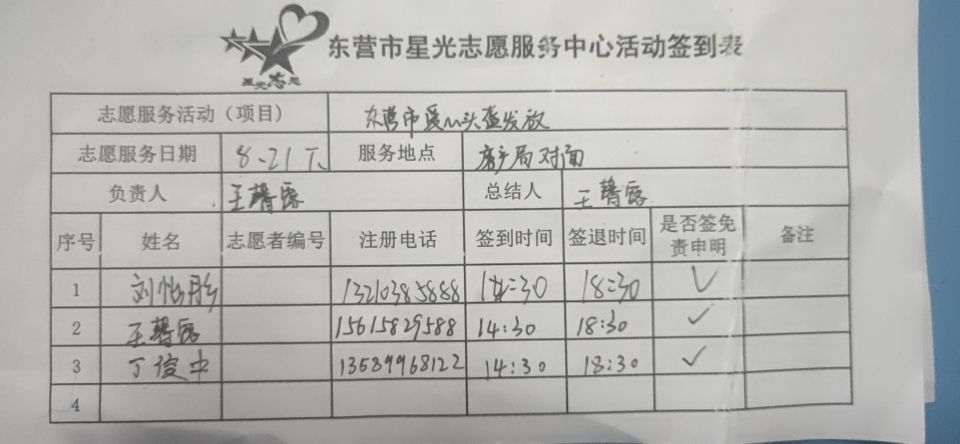 星光志愿
东营市星光志愿服务中心活动签到表
志愿服务活动（项目） 东营市爱心头盔发放
志愿服务日期 8.21下 服务地点 房产局对面
负责人 王馨露 总结人 王馨露
序号 姓名 志愿者编号 注册电话 签到时间 签退时间 是否签免责申明 备注
1 刘怡彤 13210385888 14:30 18:30 ✓
2 王馨露 15615829588 14:30 18:30 ✓
3 丁俊中 13589968122 14:30 18:30 ✓
4